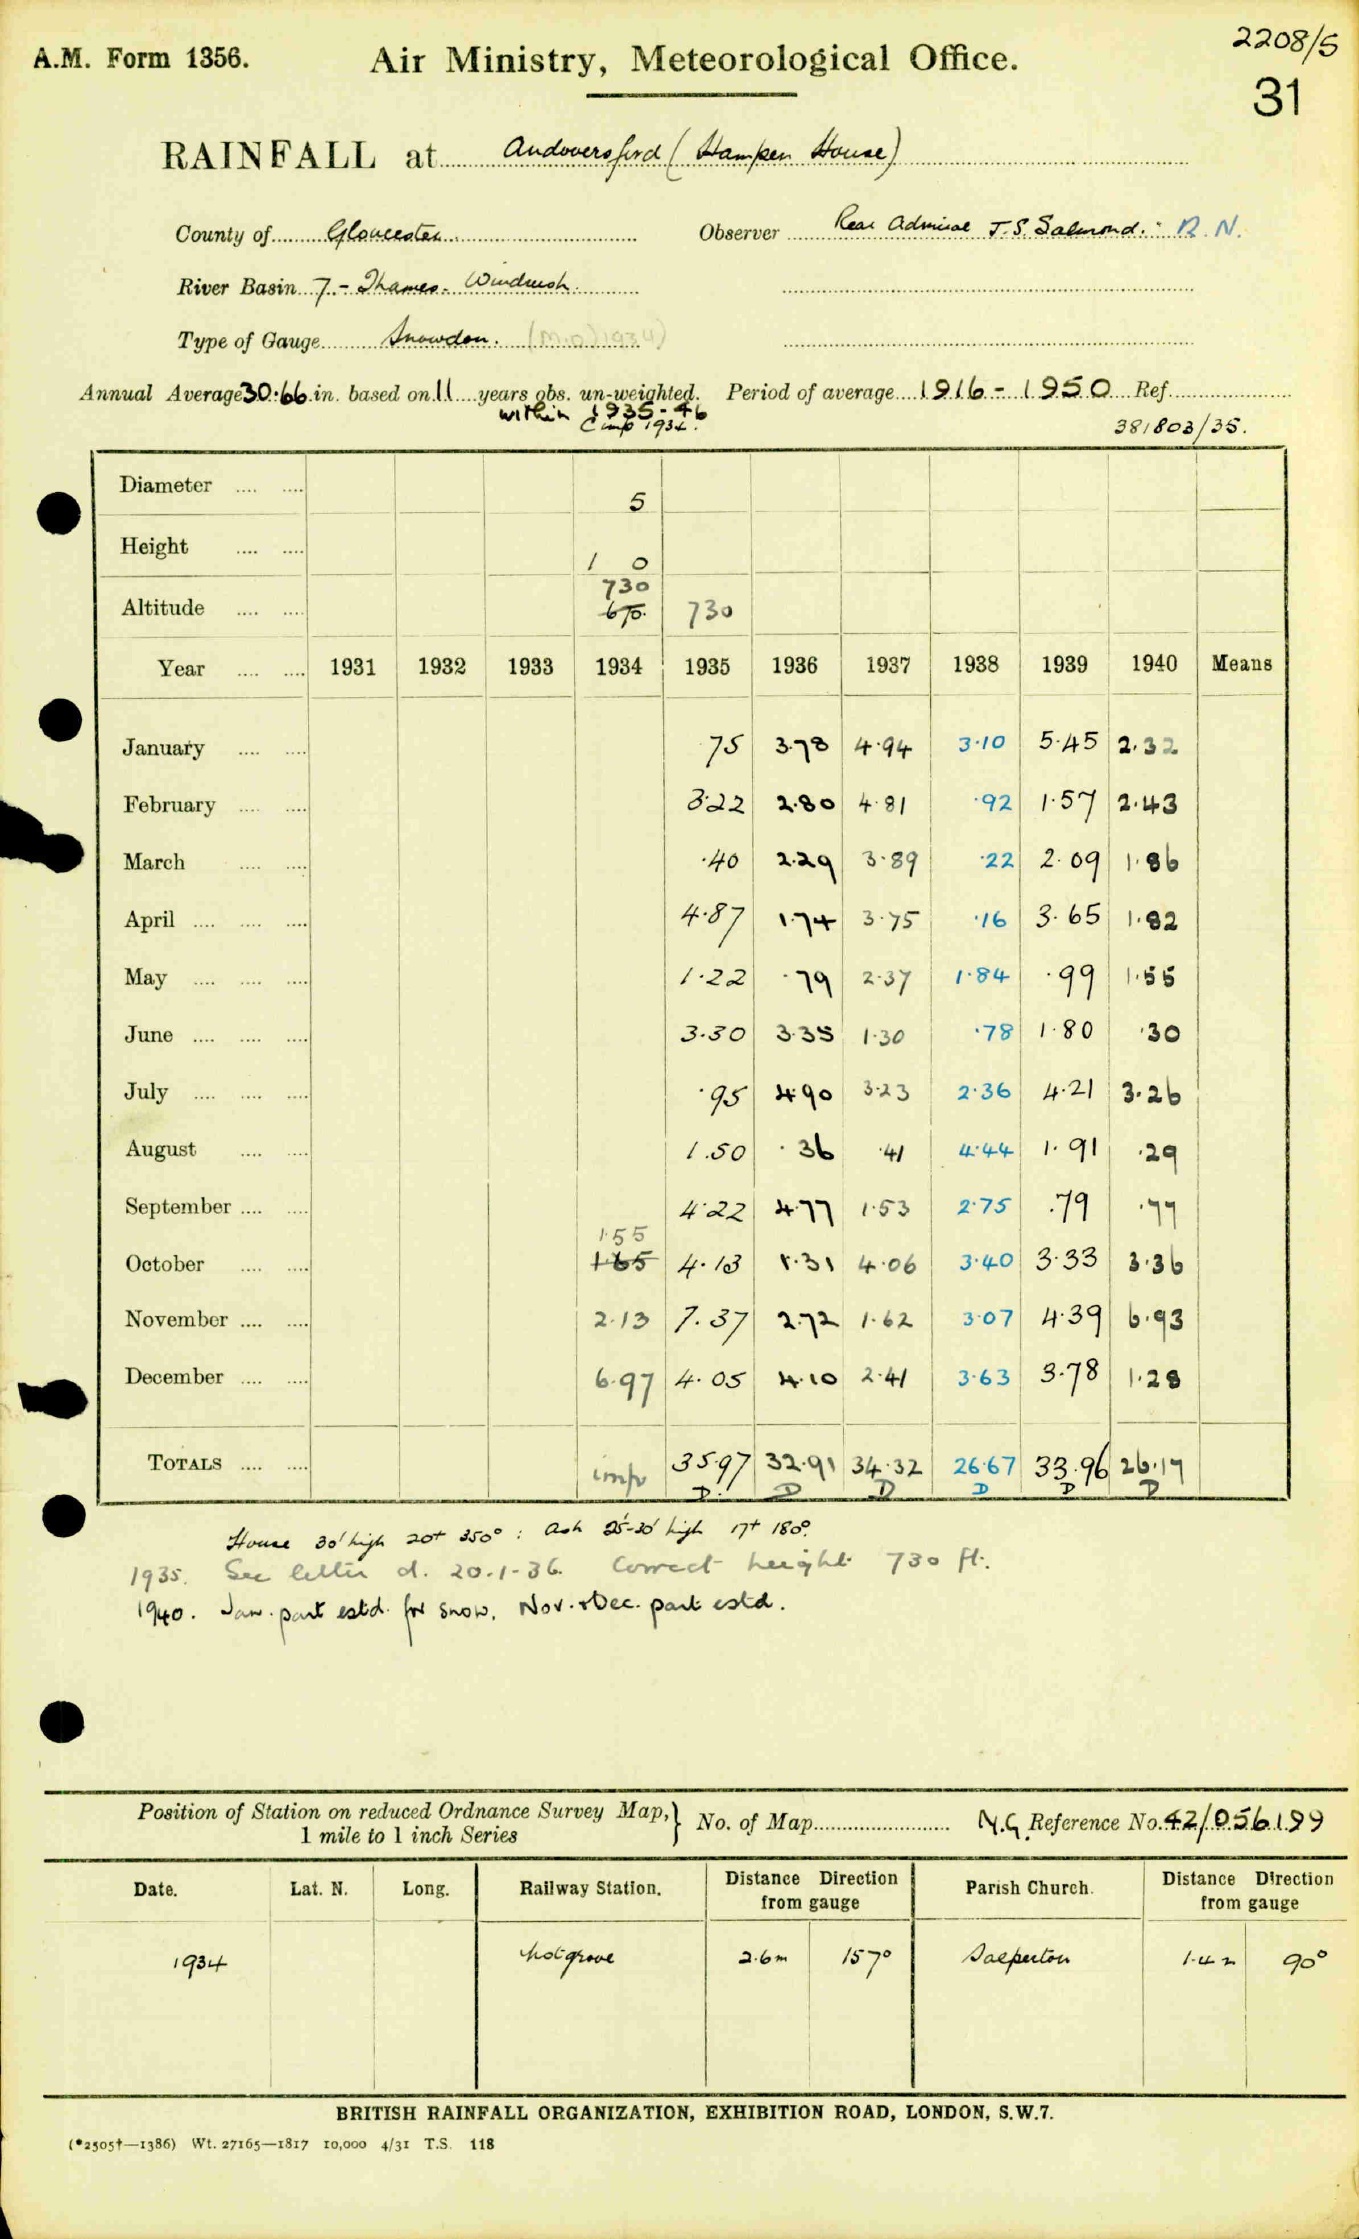 A.M. Form 1356. Air Ministry, Meteorological Office. 2208/5
31
RAINFALL at Andoversford (Hampen House)
County of Gloucester Observer Rear Admiral J.S. Salmond. R.N.
River Basin 7.- Thames - Windrush.
Type of Gauge Snowdon. (M.O) 1934)
Annual Average 30.66 in. based on 11 years obs. un-weighted. Period of average 1916 - 1950 Ref.
within 1935-46
381803/35.
Diameter 5
Height 1 0
730
Altitude 670. 730
Year 1931 1932 1933 1934 1935 1936 1937 1938 1939 1940 Means
January .75 3.78 4.94 3.10 5.45 2.32
February 3.22 2.80 4.81 .92 1.57 2.43
March .40 2.29 3.89 .22 2.09 1.86
April 4.87 1.74 3.75 .16 3.65 1.82
May 1.22 .79 2.37 1.84 .99 1.55
June 3.30 3.35 1.30 .78 1.80 .30
July .95 4.90 3.23 2.36 4.21 3.26
August 1.50 .36 .41 4.44 1.91 .29
September 4.22 4.77 1.53 2.75 .79 .77
1.55
October 1.65 4.13 1.31 4.06 3.40 3.33 3.36
November 2.13 7.37 2.72 1.62 3.07 4.39 6.93
December 6.97 4.05 4.10 2.41 3.63 3.78 1.28
TOTALS imp 35.97 32.91 34.32 26.67 33.96 26.17
D. D D D D D
House 30' high 20+ 350° : Ash 25'-30' high 17+ 180°.
1935. See letter d. 20-1-36. Correct height 730 ft.
1940. Jan. part estd. for snow. Nov. & Dec. part estd.
Position of Station on reduced Ordnance Survey Map, } No. of Map N.G. Reference No. 42/056199
1 mile to 1 inch Series
Date. Lat. N. Long. Railway Station. Distance Direction from gauge Parish Church. Distance Direction from gauge
1934 Notgrove 2.6m 157° Salperton 1.4 m 90°
BRITISH RAINFALL ORGANIZATION, EXHIBITION ROAD, LONDON, S.W.7.
(*2505†—1386) Wt. 27165—1817 10,000 4/31 T.S. 118